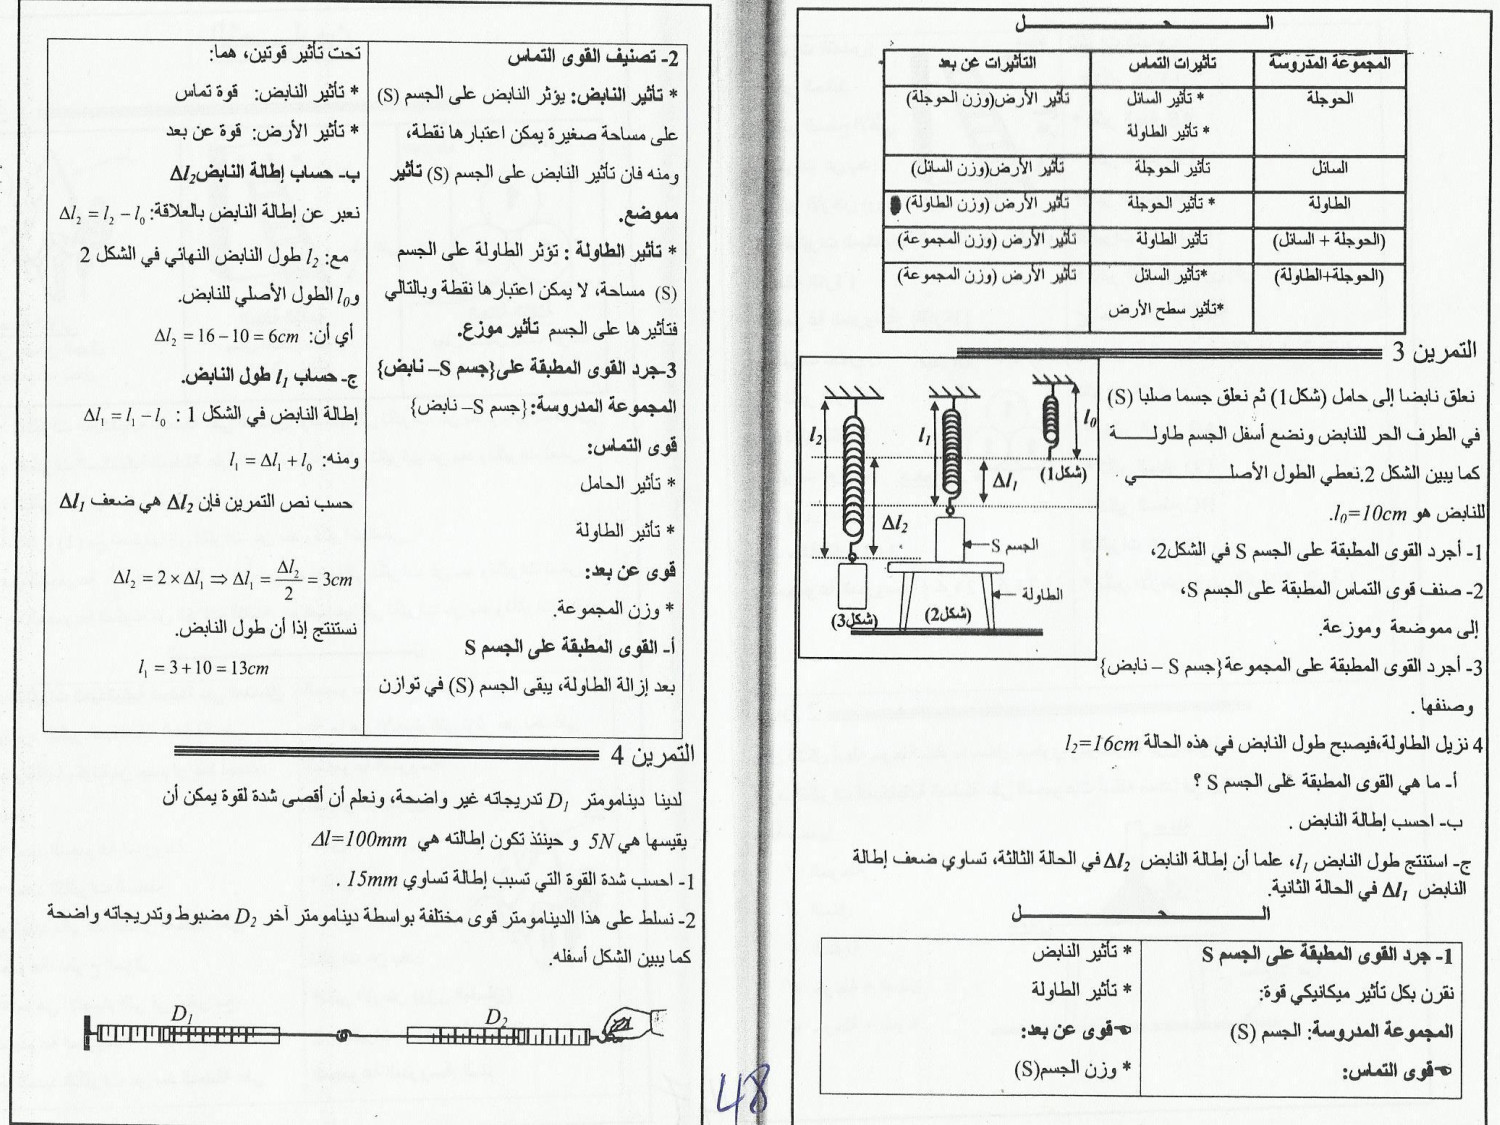 الـــــــــحـــــــــل
المجموعة المدروسة	تأثيرات التماس	التأثيرات عن بعد
الحوجلة	* تأثير السائل	تأثير الأرض(وزن الحوجلة)
* تأثير الطاولة
السائل	تأثير الحوجلة	تأثير الأرض(وزن السائل)
الطاولة	* تأثير الحوجلة	تأثير الأرض (وزن الطاولة)
(الحوجلة + السائل)	تأثير الطاولة	تأثير الأرض (وزن المجموعة)
(الحوجلة+الطاولة)	*تأثير السائل	تأثير الأرض (وزن المجموعة)
*تأثير سطح الأرض
التمرين 3
نعلق نابضا إلى حامل (شكل1) ثم نعلق جسما صلبا (S)
في الطرف الحر للنابض ونضع أسفل الجسم طاولـــــة
كما يبين الشكل 2.نعطي الطول الأصلـــــــــي
للنابض هو l₀=10cm.
1- أجرد القوى المطبقة على الجسم S في الشكل2،
2- صنف قوى التماس المطبقة على الجسم S،
إلى مموضعة وموزعة.
3- أجرد القوى المطبقة على المجموعة{جسم S – نابض}
وصنفها .
4 نزيل الطاولة،فيصبح طول النابض في هذه الحالة l₂=16cm
أ- ما هي القوى المطبقة على الجسم S ؟
ب- احسب إطالة النابض .
ج- استنتج طول النابض l₁، علما أن إطالة النابض Δl₂ في الحالة الثالثة، تساوي ضعف إطالة
النابض Δl₁ في الحالة الثانية.
l₂
l₁
l₀
Δl₁
Δl₂
(شكل1)
الجسم S
الطاولة
(شكل2)
(شكل3)
الـــــــــحـــــــــل
1- جرد القوى المطبقة على الجسم S
نقرن بكل تأثير ميكانيكي قوة:
المجموعة المدروسة: الجسم (S)
☜قوى التماس:
* تأثير النابض
* تأثير الطاولة
☜قوى عن بعد:
* وزن الجسم(S)
2- تصنيف القوى التماس
* تأثير النابض: يؤثر النابض على الجسم (S)
على مساحة صغيرة يمكن اعتبارها نقطة،
ومنه فان تأثير النابض على الجسم (S) تأثير
مموضع.
* تأثير الطاولة : تؤثر الطاولة على الجسم
(S) مساحة، لا يمكن اعتبارها نقطة وبالتالي
فتأثيرها على الجسم تأثير موزع.
3-جرد القوى المطبقة على{جسم S– نابض}
المجموعة المدروسة:{جسم S– نابض}
قوى التماس:
* تأثير الحامل
* تأثير الطاولة
قوى عن بعد:
* وزن المجموعة.
أ- القوى المطبقة على الجسم S
بعد إزالة الطاولة، يبقى الجسم (S) في توازن
تحت تأثير قوتين، هما:
* تأثير النابض: قوة تماس
* تأثير الأرض: قوة عن بعد
ب- حساب إطالة النابضΔl₂
نعبر عن إطالة النابض بالعلاقة: Δl₂ = l₂ − l₀
مع: l₂ طول النابض النهائي في الشكل 2
وl₀ الطول الأصلي للنابض.
أي أن: Δl₂ = 16 − 10 = 6cm
ج- حساب l₁ طول النابض.
إطالة النابض في الشكل 1 : Δl₁ = l₁ − l₀
ومنه: l₁ = Δl₁ + l₀
حسب نص التمرين فإن Δl₂ هي ضعف Δl₁
Δl₂ = 2 × Δl₁ ⇒ Δl₁ = Δl₂/2 = 3cm
نستنتج إذا أن طول النابض.
l₁ = 3 + 10 = 13cm
التمرين 4
لدينا دينامومتر D₁ تدريجاته غير واضحة، ونعلم أن أقصى شدة لقوة يمكن أن
يقيسها هي 5N و حينئذ تكون إطالته هي Δl=100mm
1- احسب شدة القوة التي تسبب إطالة تساوي 15mm .
2- نسلط على هذا الدينامومتر قوى مختلفة بواسطة دينامومتر آخر D₂ مضبوط وتدريجاته واضحة
كما يبين الشكل أسفله.
D₁
D₂
48